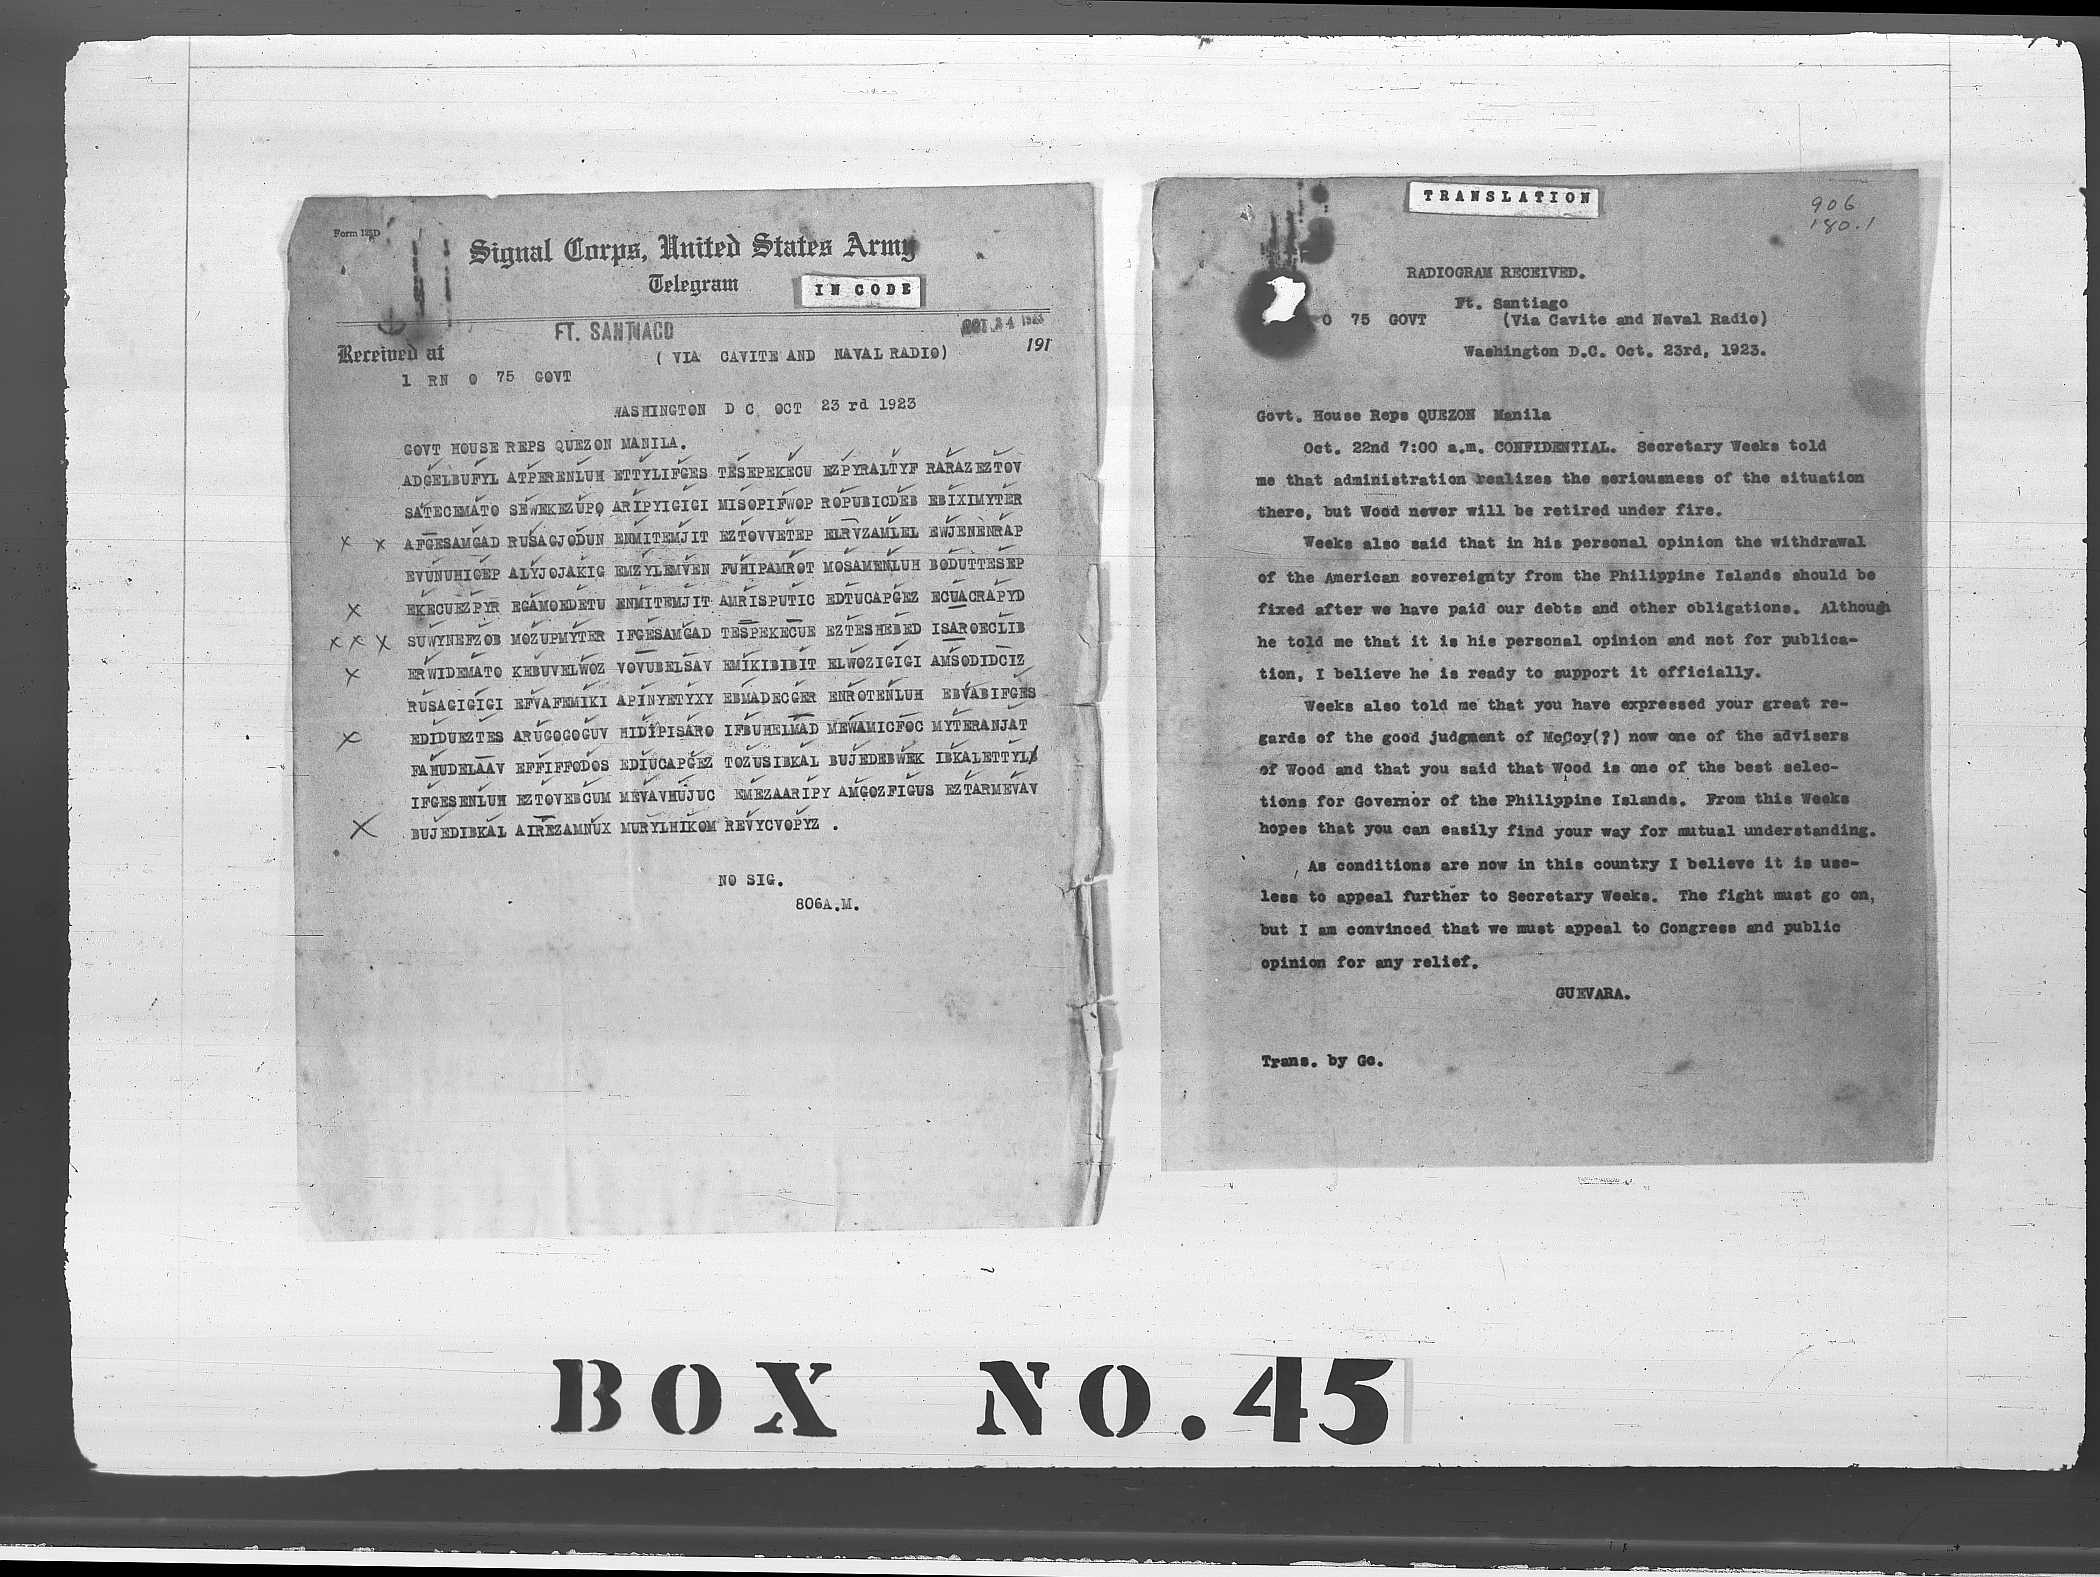 Form 125D
Signal Corps, United States Army
Telegram
IN CODE
FT. SANTIAGO
OCT 24 1923
Received at
191
( VIA CAVITE AND NAVAL RADIO)
1 RN O 75 GOVT
WASHINGTON D C OCT 23 rd 1923
GOVT HOUSE REPS QUEZON MANILA.
ADGELBUFYL ATPERENLUH ETTYLIFGES TESEPEKECU EZPYRALTYF RARAZEZTOV
SATECEMATO SEWEKEZUPO ARIPYIGIGI MISOPIFWOP ROPUBICDEB EBIXIMYTER
X X AFGESAMGAD RUSAGJODUN ENMITEMJIT EZTOVVETEP ELRVZAMLEL EWJENENRAP
EVUNUHIGEP ALYJOJAKIG EMZYLEMVEN FUHIPAMROT MOSAMENLUH BODUTTESEP
X EKECUEZPYR EGAMOEDETU ENMITEMJIT AMRISPUTIC EDTUCAPGEZ ECUACRAPYD
X X X SUWYNEFZOB MOZUPMYTER IFGESAMGAD TESPEKECUE EZTESHEBED ISAROECLIB
X ERWIDEMATO KEBUVELWOZ VOVUBELSAV EMIKIBIBIT ELWOZIGIGI AMSODIDCIZ
RUSAGIGIGI EFVAFEMIKI APINYETYXY EBMADECGER ENROTENLUH EBVABIFGES
X EDIDUEZTES ARUGOGOGUV HIDIPISARO IFBUHELMAD MEWAMICFOC MYTERANJAT
FAHUDELAAV EFFIFFODOS EDIUCAPGEZ TOZUSIBKAL BUJEDEBWEK IBKALETTYL
IFGESENLUH EZTOVEBCUM MEVAVHUJUC EMEZAARIPY AMGOZFIGUS EZTARMEVAV
X BUJEDIBKAL AIREZAMNUX MURYLHIKOM REVYCVOPYZ .
NO SIG.
806A.M.
TRANSLATION
906
180.1
RADIOGRAM RECEIVED.
Ft. Santiago
O 75 GOVT (Via Cavite and Naval Radio)
Washington D.C. Oct. 23rd, 1923.
Govt. House Reps QUEZON Manila
Oct. 22nd 7:00 a.m. CONFIDENTIAL. Secretary Weeks told
me that administration realizes the seriousness of the situation
there, but Wood never will be retired under fire.
Weeks also said that in his personal opinion the withdrawal
of the American sovereignty from the Philippine Islands should be
fixed after we have paid our debts and other obligations. Although
he told me that it is his personal opinion and not for publica-
tion, I believe he is ready to support it officially.
Weeks also told me that you have expressed your great re-
gards of the good judgment of McCoy(?) now one of the advisers
of Wood and that you said that Wood is one of the best selec-
tions for Governor of the Philippine Islands. From this Weeks
hopes that you can easily find your way for mutual understanding.
As conditions are now in this country I believe it is use-
less to appeal further to Secretary Weeks. The fight must go on,
but I am convinced that we must appeal to Congress and public
opinion for any relief.
GUEVARA.
Trans. by Ge.
BOX NO. 45